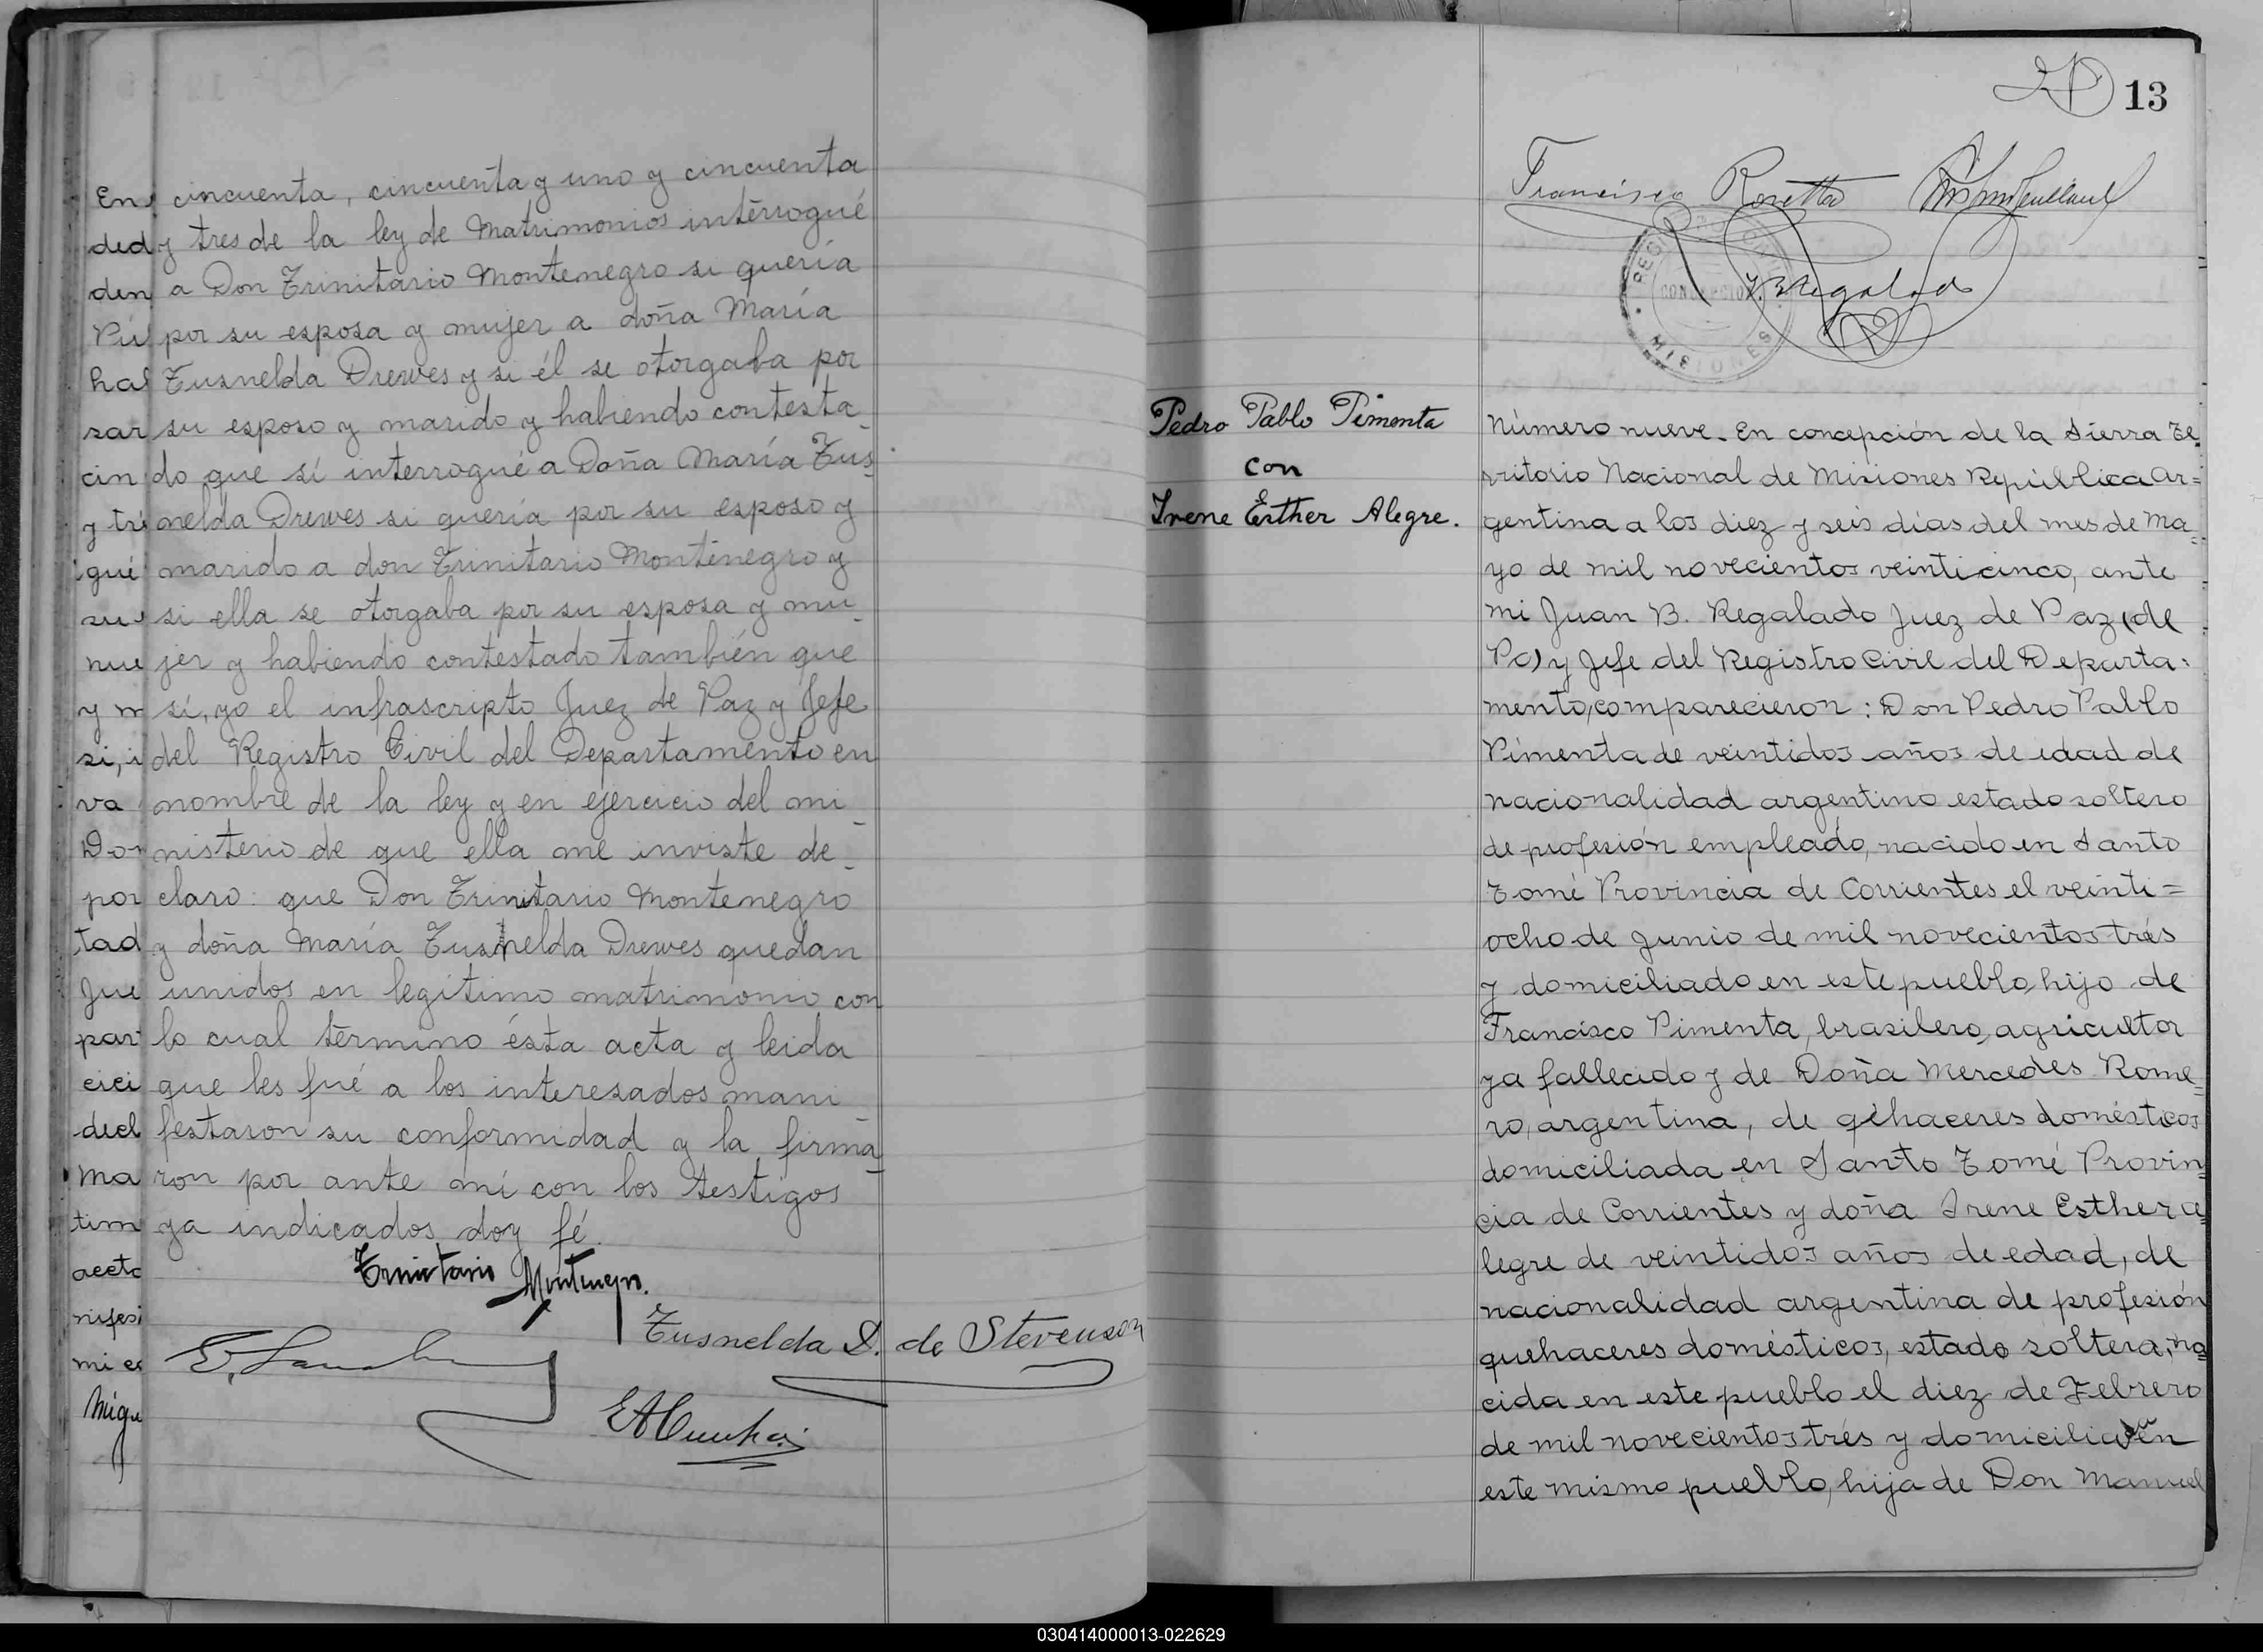 cincuenta, cincuenta y uno y cincuenta
y tres de la ley de Matrimonios interrogué
a Don Trinitario Montenegro si quería
por su esposa y mujer a doña María
Tusnelda Drewes y si él se otorgaba por
su esposo y marido y habiendo contesta_
do que sí interrogué a Doña María Tus_
nelda Drewes si quería por su esposo y
marido a don Trinitario Montenegro y
si ella se otorgaba por su esposa y mu_
jer y habiendo contestado también que
sí, yo el infrascripto Juez de Paz y Jefe
del Registro Civil del Departamento en
nombre de la ley y en ejercicio del mi_
nisterio de que ella me inviste de_
claro: que Don Trinitario Montenegro
y doña María Tusnelda Drewes quedan
unidos en legítimo matrimonio con
lo cual término ésta acta y leida
que les fué a los interesados mani_
festaron su conformidad y la firma_
ron por ante mí con los testigos
ya indicados doy fé.
Trinitario Montenegro.
Tusnelda D. de Stevenson
En
ded
den
Pú
hal
sar
cin
y tri
gué
su
nue
y m
si, i
va
Don
por
tad
Jue
par
cici
decl
ma
tim
acta
nifes
mi es
Migu
13
Francisco Rosetta
J. B. Regalado
REGISTRO CIVIL
CONCEPCION
MISIONES
Pedro Pablo Pimenta
con
Irene Esther Alegre.
Número nueve. En concepción de la Sierra Te_
rritorio Nacional de Misiones República Ar=
gentina a los diez y seis días del mes de Ma_
yo de mil novecientos veinticinco, ante
mi Juan B. Regalado Juez de Paz (de
Pa) y Jefe del Registro Civil del Departa=
mento, comparecieron: Don Pedro Pablo
Pimenta de veintidos años de edad de
nacionalidad argentino estado soltero
de profesión empleado, nacido en Santo
Tomé Provincia de Corrientes el veinti=
ocho de Junio de mil novecientos trés
y domiciliado en este pueblo, hijo de
Francisco Pimenta, brasilero, agricultor
ya fallecido y de Doña Mercedes Rome_
ro, argentina, de qéhaceres domésticos
domiciliada en Santo Tomé Provin_
cia de Corrientes y doña Irene Esther A_
legre de veintidos años de edad, de
nacionalidad argentina de profesión
quehaceres domésticos, estado soltera, na_
cida en este pueblo el diez de Febrero
de mil novecientos trés y domiciliada en
este mismo pueblo, hija de Don Manuel
030414000013-022629